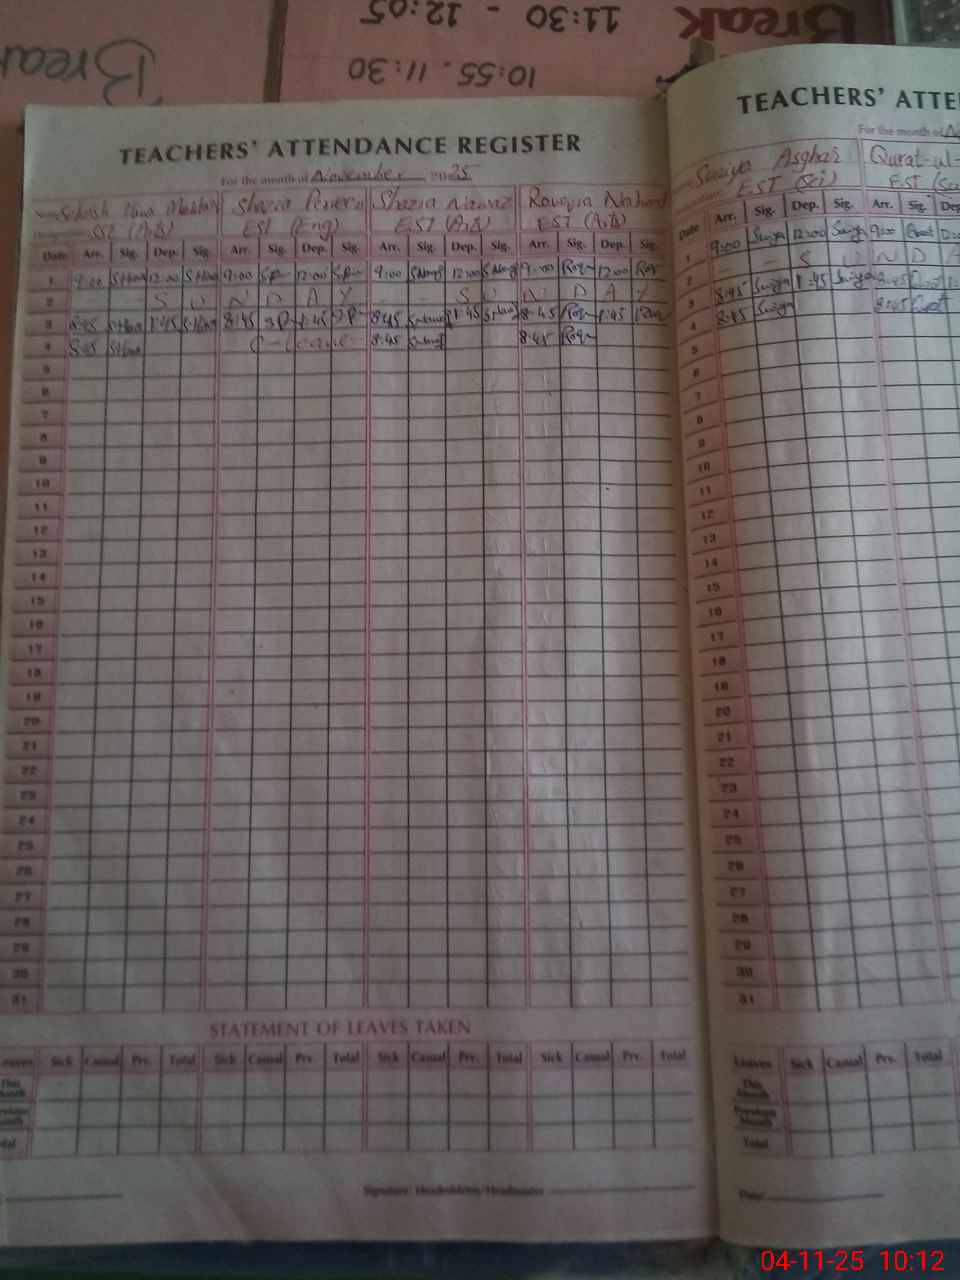 Break
11:30 - 12:05
10:55 . 11:30
Break
TEACHERS' ATTENDANCE REGISTER
For the month of November 2025
Shazia Shazia Nawaz
SSE (A,B) EST (Eng) EST (A,B) EST (A,B)
Date Arr. Sig. Dep. Sig. Arr. Sig. Dep. Sig. Arr. Sig. Dep. Sig. Arr. Sig. Dep. Sig.
1 9:00 S Hina 12:00 S Hina 9:00 SP 12:00 SP 9:00 S Nawaz 12:00 S Nawaz 9:00 Roq 12:00 Roq
2 S U N D A Y S U N D A Y
3 8:45 S Hina 1:45 S Hina 8:45 SP 1:45 SP 8:45 S Nawaz 1:45 S Nawaz 8:45 Roq 1:45 Roq
4 8:45 S Hina C-Leave 8:45 S Nawaz 8:45 Roq
5
6
7
8
9
10
11
12
13
14
15
16
17
18
19
20
21
22
23
24
25
26
27
28
29
30
31
STATEMENT OF LEAVES TAKEN
Leaves Sick Casual Prv. Total Sick Casual Prv. Total Sick Casual Prv. Total Sick Casual Prv. Total
This Month
Previous Month
Total
Signature: Headmistress/Headmaster
TEACHERS' ATTE
For the month of
Asghar Qurat-ul-
EST (Sci) EST (Sc
Date Arr. Sig. Dep. Sig. Arr. Sig. Dep
1 9:00 12:00 9:00 Qurat
2 S U N D A
3 8:45 1:45 8:45 Qurat
4 8:45 8:45 Qurat
5
6
7
8
9
10
11
12
13
14
15
16
17
18
19
20
21
22
23
24
25
26
27
28
29
30
31
Leaves Sick Casual Prv. Total
This Month
Previous Month
Total
Date
04-11-25 10:12